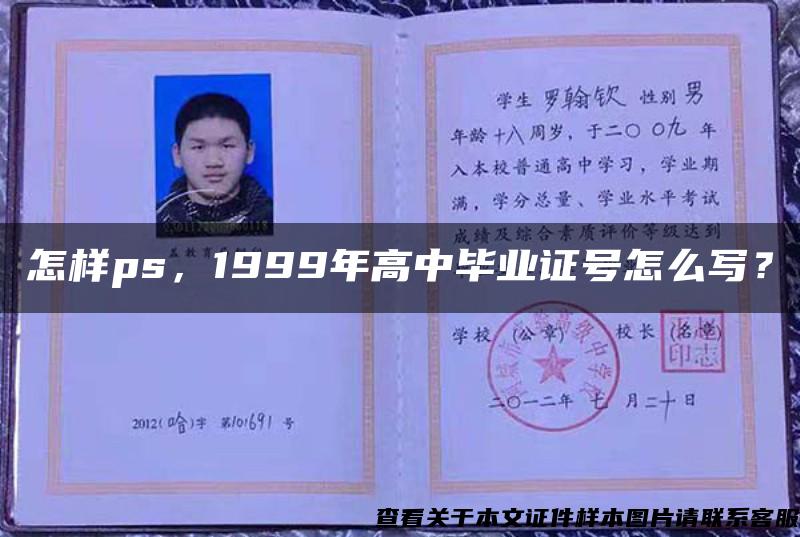 学生 罗翰钦 性别 男
年龄 十八 周岁，于二〇〇九 年
入本校普通高中学习，学业期
满，学分总量、学业水平考试
成绩及综合素质评价等级达到
怎样ps，1999年高中毕业证号怎么写？
学校 (公章) 校长 (名章)
二〇一二年 七 月二十日
2012(哈)字 第101691 号
查看关于本文证件样本图片请联系客服